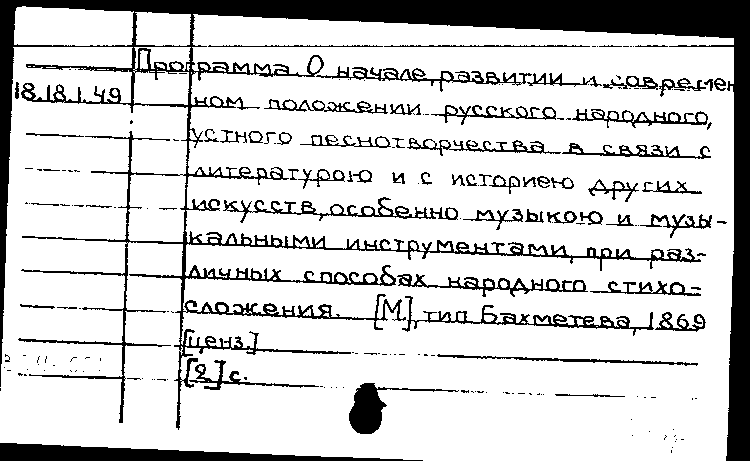 Программа. О начале, развитии и современ
18.18.1.49
ном положении русского народного,
устного песнотворчества в связи с
литературою и с историею других
искусств, особенно музыкою и музы-
кальными инструментами, при раз-
личных способах народного стихо-
сложения. [М], тип Бахметева, 1869
[ценз.]
[2] с.